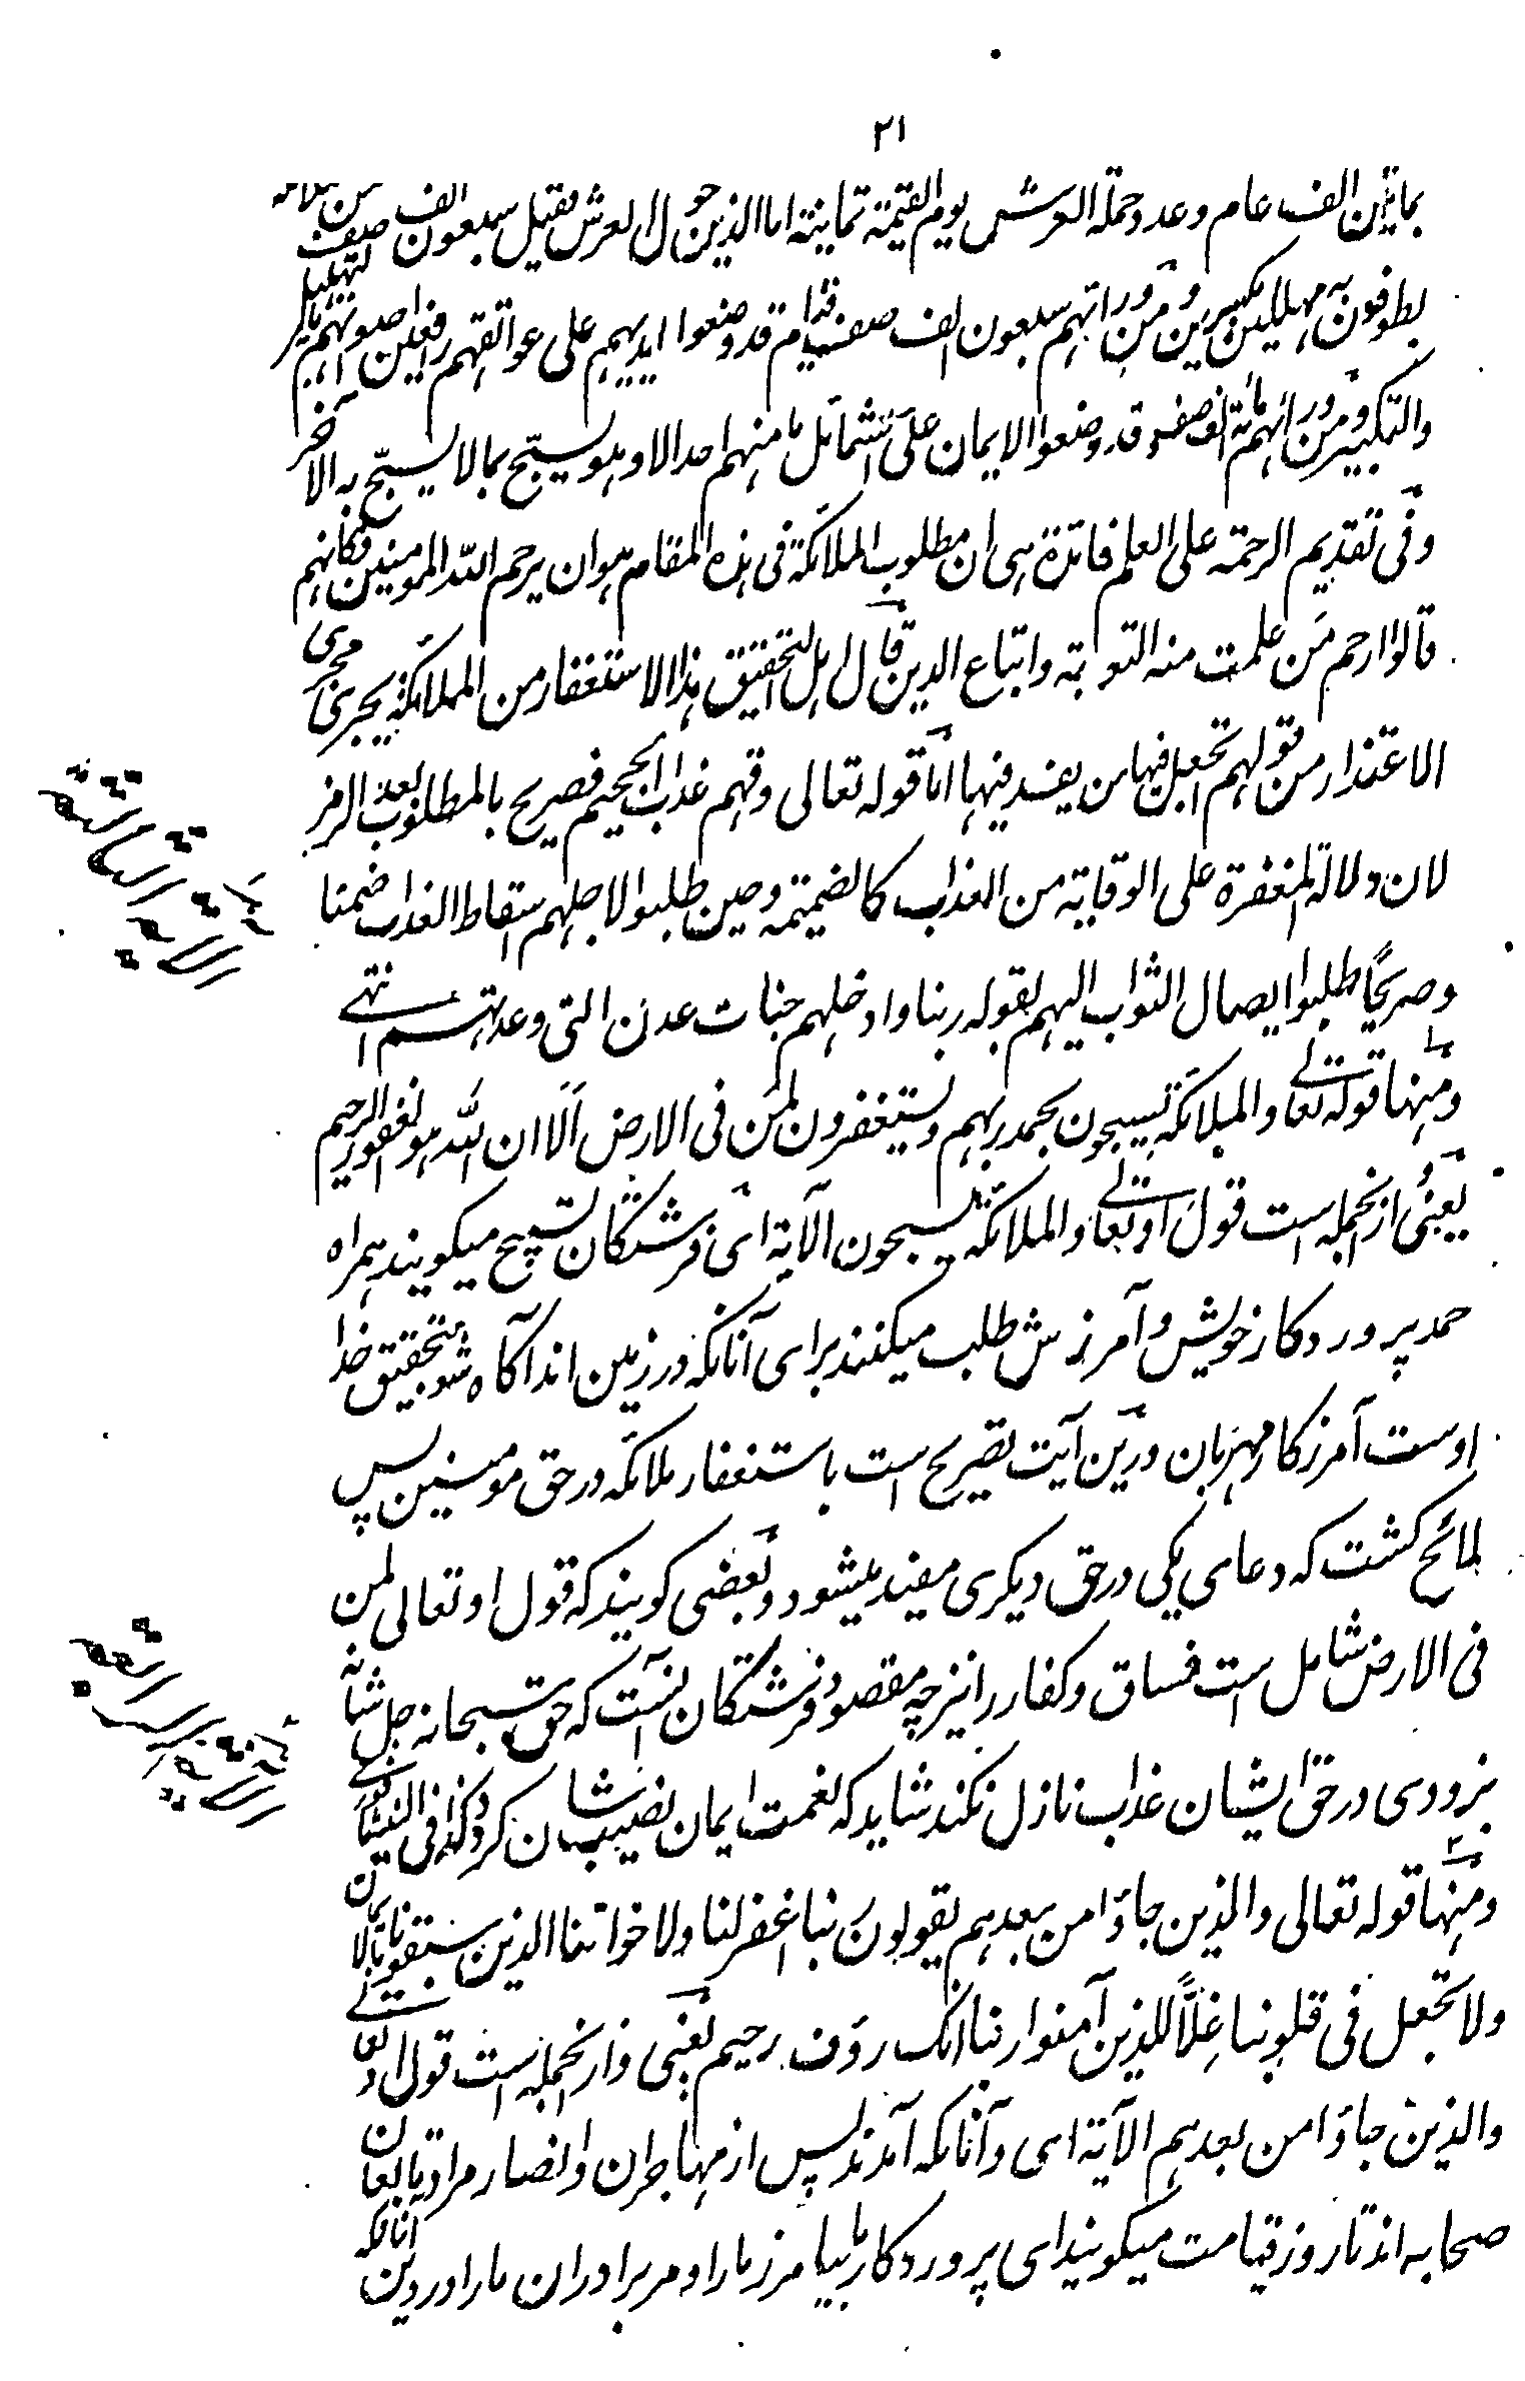 ٢١
بمايتين الف عام وعدد حملة العرش يوم القيمة ثمانية اما الذين حول العرش فقيل سبعون الف صف من الملائكة
يطوفون به مهللين مكبرين ومن ورائهم سبعون الف صف قيام قد وضعوا ايديهم على عواتقهم رافعين اصواتهم بالتهليل
والتكبير ومن ورائهم مائة الف صف قد وضعوا الايمان على الشمائل ما منهم احد الا وهو يسبح بما لا يسبح به الاخر
وفى تقديم الرحمة على العلم فائدة هى ان مطلوب الملائكة فى هذه المقام هو ان يرحم الله المومنين فكانهم
قالوا ارحم من علمت منه التوبة واتباع الدين قال اهل التحقيق هذا الاستغفار من الملائكة يجرى مجرى
الاعتذار من قولهم اتجعل فيها من يفسد فيها اما قوله تعالى وقهم عذاب الجحيم فصريح بالمطلوب بعد الرمز
لان دلالة المغفرة على الوقاية من العذاب كالضميمة وحين طلبوا لاجلهم اسقاط العذاب ضمنا
وصريحًا طلبوا ايصال الثواب اليهم بقوله ربنا وادخلهم جنات عدن التى وعدتهم انتهى
ومنها قوله تعالى والملائكة يسبحون بحمد ربهم ويستغفرون لمن فى الارض الا ان الله هو الغفور الرحيم
يعنى و ازانجمله است قول او تعالى والملائكة يسبحون الآية اى فرشتگان تسبيح ميكويند همراه
حمد پروردكار خويش و آمرزش طلب ميكنند براى آنانكه در زمين اند آكاه شو بتحقيق خدا
اوست آمرزكار مهربان درين آيت تصريح است باستغفار ملائكه در حق مومنين پس
لائح گشت كه دعاى يكى در حق ديكرى مفيد ميشود و بعضى كويند كه قول او تعالى لمن
فى الارض شامل است فساق و كفار را نيز چه مقصود فرشتگان آنست كه حق سبحانه جل شانه
بزودى در حق ايشان عذاب نازل نكند شايد كه نعمت ايمان نصيب شان كردد كذا فى النيشاپورى
ومنها قوله تعالى والذين جاؤا من بعدهم يقولون ربنا اغفر لنا ولاخواننا الذين سبقونا بالايمان
ولا تجعل فى قلوبنا غِلًّا للذين آمنوا ربنا انك رؤف رحيم يعنى و ازانجمله است قول او تعالى
والذين جاؤا من بعدهم الآية اى و آنانكه آمدند پس از مهاجران و انصار مراد تابعان
صحابه اند تا روز قيامت ميكويند اى پروردكار ما بيامرز ما را و مر برادران ما را در دين آنانكه
الآية الثالثة
الآية الرابعة